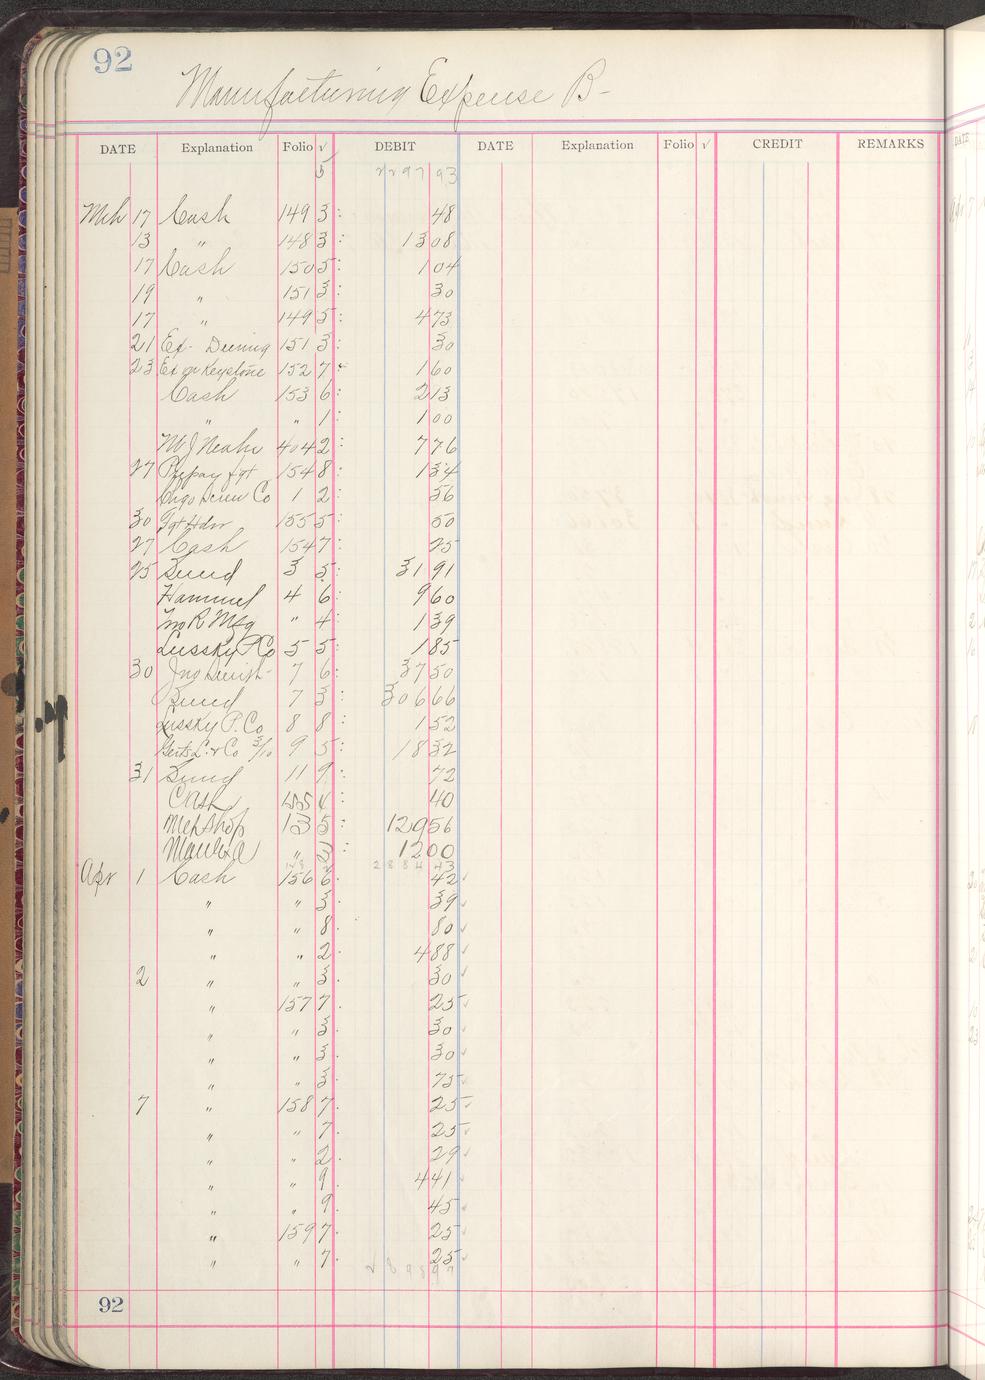 92
Manufacturing Expense B-
DATE Explanation Folio √ DEBIT DATE Explanation Folio √ CREDIT REMARKS
2297 93
Mch 17 Cash 149 3: 48
13 " 148 3: 13 08
17 Cash 150 5: 1 04
19 " 151 3: 30
17 " 149 5: 4 73
21 Ex- Deering 151 3: 30
23 Ex on Keystone 152 7 1 60
Cash 153 6: 2 13
" " 1: 1 00
404 2: 7 76
27 Prepay fgt 154 8: 1 34
Chgo Screw Co 1 2: 56
30 Fgt Hdw 155 5: 50
27 Cash 154 7: 25
25 3 5: 31 91
Hammel 4 6: 9 60
Mfg " 4: 1 39
Lussky P Co 5 5: 1 85
30 Jno 7 6: 37 50
7 3: 306 66
Lussky P. Co 8 8: 1 52
Gerts L. & Co 3/10 9 5: 18 32
31 11 9: 72
Cash 155 4: 40
Mch Shop 13 5: 129 56
" 12 00
2884 43
Apr 1 Cash 156 6. 42
" " 3. 39
" " 8. 80
" " 2. 4 88
2 " " 3. 30
" 157 7. 25
" " 3. 30
" " 3. 30
" " 3. 75
7 " 158 7. 25
" " 7. 25
" " 2. 29
" " 9. 4 41
" " 9. 45
" 159 7. 25
" " 7. 25
92